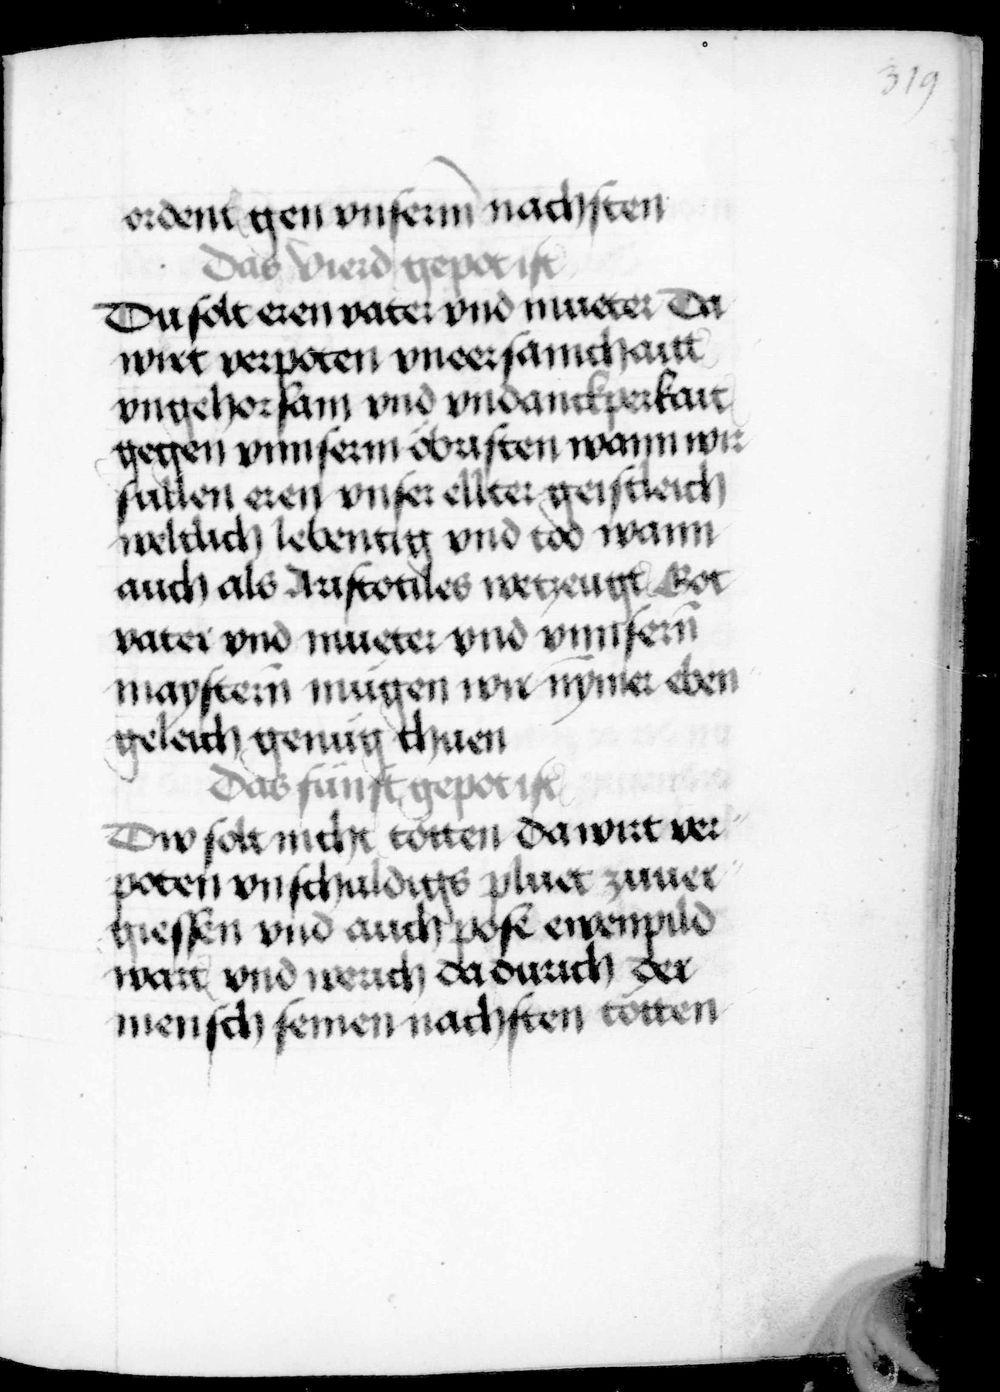 319
ordent gen vnserm nachsten
Das Vierd gepot ist
Du solt eren vater vnd mueter Da
wirt verpoten vneersamchaitt
vngehorsam vnd vndanckperkait
gegen vnnserm öbristen wann wir
sullen eren vnser ellter geistleich
weltlich lebentig vnd tod wann
auch als Aristotiles wetzeugt Got
vater vnd mueter vnd vnnserñ
maysterñ mügen wir nȳmer eben
geleich genüg thuen
Das fünft gepot ist
Dw solt nicht tötten da wirt ver
poten vnschuldigs pluet zuuer
giessen vnd auch pose ewenpild
wart vnd werich da durich der
mensch seinen nachsten tötten